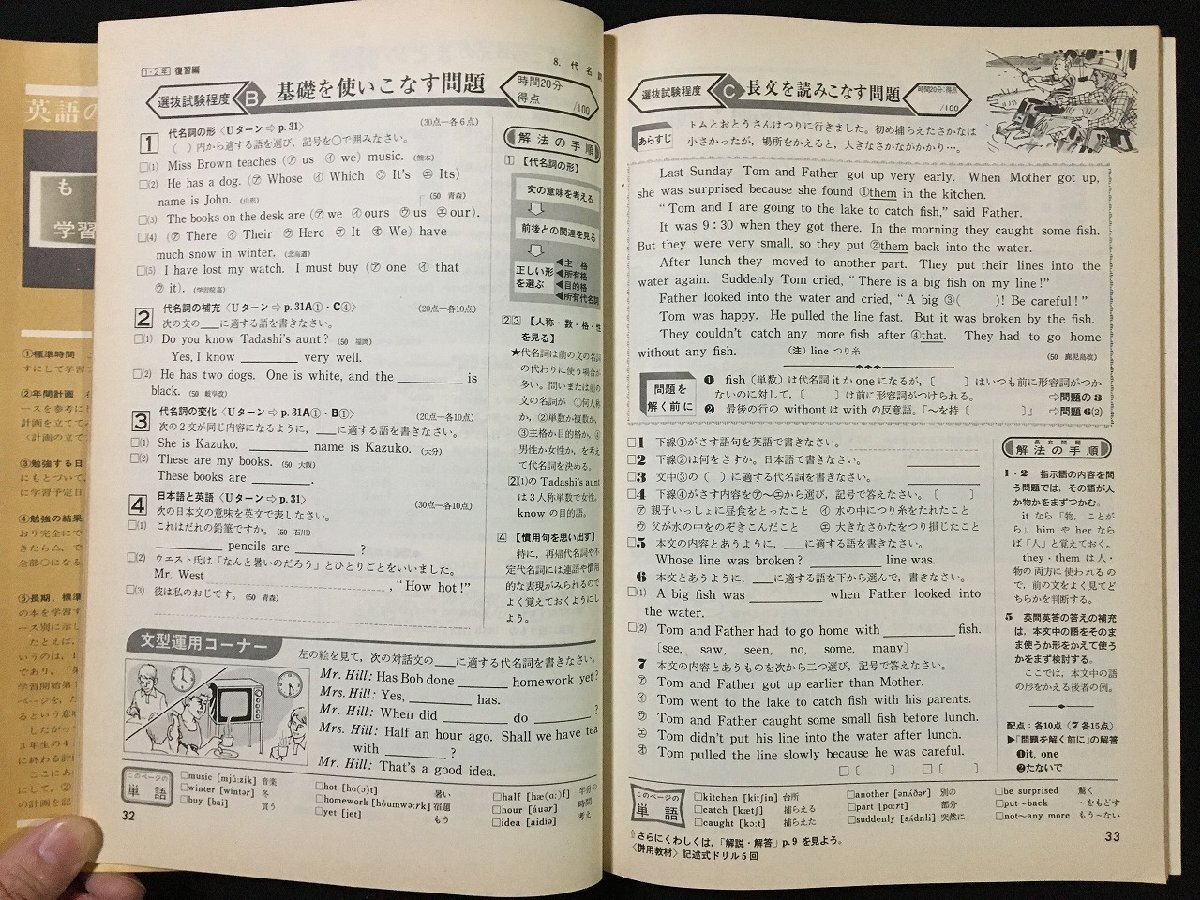 英語の
も
学習
①標準時間
すにして学習
②年間計画
ースを参考に
計画を立てて
〈計画の立て
③勉強する日
にもとづいて、
に学習予定日
④勉強の結果
おり完全にで
きたら△、で
全部○になる
⑤長期、標準
の本を学習す
ース別に示し
たとえば、
いうのは、1
であり、第
学習開始第
ページを、た
るという意味
したがっ
3年生の4
に終わる計
ここにあ
にして、②
の計画を記
1・2年 復習編
8. 代名詞
選抜試験程度 B 基礎を使いこなす問題
時間20分
得点 /100
1 代名詞の形〈Uターン⇨p.31〉 (30点―各6点)
( )内から適する語を選び、記号を○で囲みなさい。
□(1) Miss Brown teaches (㋐ us ㋑ we) music. (熊本)
□(2) He has a dog. (㋐ Whose ㋑ Which ㋒ It's ㋓ Its)
name is John. (50 青森)
□(3) The books on the desk are (㋐ we ㋑ ours ㋒ us ㋓ our).
□(4) (㋐ There ㋑ Their ㋒ Here ㋓ It ㋔ We) have
much snow in winter. (北海道)
□(5) I have lost my watch. I must buy (㋐ one ㋑ that
㋒ it). (学習院高)
2 代名詞の補充〈Uターン⇨p.31A①・C④〉 (20点―各10点)
次の文の＿に適する語を書きなさい。
□(1) Do you know Tadashi's aunt? (50 福岡)
Yes, I know ______ very well.
□(2) He has two dogs. One is white, and the ______ is
black. (50 岐阜)
3 代名詞の変化〈Uターン⇨p.31A①・B①〉 (20点―各10点)
次の2文が同じ内容になるように、＿に適する語を書きなさい。
□(1) She is Kazuko. ______ name is Kazuko. (大分)
□(2) These are my books. (50 大阪)
These books are ______.
4 日本語と英語〈Uターン⇨p.31〉 (30点―各10点)
次の日本文の意味を英文で表しなさい。
□(1) これはだれの鉛筆ですか。(50 石川)
______ pencils are ______ ?
□(2) ウエスト氏は「なんと暑いのだろう」とひとりごとをいいました。
Mr. West ______, "How hot!"
□(3) 彼は私のおじです。(50 青森)
解法の手順
1 【代名詞の形】
文の意味を考える
前後との関連を見る
正しい形を選ぶ
◀主格
◀所有格
◀目的格
◀所有代名詞
2 3 【人称・数・格・性
を見る】
★代名詞は前の文の名詞
の代わりに使う場合が
多い。問いまたは前の
文の名詞が ①何人称
か、②単数か複数か、
③主格か目的格か、④
男性か女性か、を考え
て代名詞を決める。
2(1)の Tadashi's aunt
は3人称単数で女性。
know の目的語。
4 【慣用句を思い出す】
特に、再帰代名詞や不
定代名詞には連語や慣用
的な表現がみられるので
よく覚えておくようにし
よう。
文型運用コーナー
左の絵を見て、次の対話文の＿に適する代名詞を書きなさい。
Mr. Hill: Has Bob done ______ homework yet?
Mrs. Hill: Yes, ______ has.
Mr. Hill: When did ______ do ______ ?
Mrs. Hill: Half an hour ago. Shall we have tea
with ______ ?
Mr. Hill: That's a good idea.
このページの単語
□music [mjú:zik] 音楽
□winter [wíntər] 冬
□buy [bai] 買う
□hot [hɑ(ɔ)t] 暑い
□homework [hóumwə:rk] 宿題
□yet [jet] もう
□half [hæ(ɑ:)f] 半分の
□hour [áuər] 時間
□idea [aidíə] 考え
32
選抜試験程度 C 長文を読みこなす問題
時間20分・得点 /100
あらすじ
トムとおとうさんはつりに行きました。初め捕らえたさかなは
小さかったが、場所をかえると、大きなさかながかかり…。
Last Sunday Tom and Father got up very early. When Mother got up,
she was surprised because she found ①them in the kitchen.
"Tom and I are going to the lake to catch fish," said Father.
It was 9:30 when they got there. In the morning they caught some fish.
But they were very small, so they put ②them back into the water.
After lunch they moved to another part. They put their lines into the
water again. Suddenly Tom cried, "There is a big fish on my line!"
Father looked into the water and cried, "A big ③( )! Be careful!"
Tom was happy. He pulled the line fast. But it was broken by the fish.
They couldn't catch any more fish after ④that. They had to go home
without any fish. (注) line つり糸 (50 鹿児島改)
問題を解く前に
❶ fish (単数) は代名詞 it か one になるが、[ ] はいつも前に形容詞がつか
ないのに対して、[ ] は前に形容詞がつけられる。 →問題の3
❷ 最後の行の without は with の反意語。「～を持 [ ]」 →問題6(2)
□1 下線①がさす語句を英語で書きなさい。
□2 下線②は何をさすか。日本語で書きなさい。
□3 文中③の ( ) に適する代名詞を書きなさい。
□4 下線④がさす内容を㋐～㋓から選び、記号で答えなさい。[ ]
㋐ 親子いっしょに昼食をとったこと ㋑ 水の中につり糸をたれたこと
㋒ 父が水の中をのぞきこんだこと ㋓ 大きなさかなをつり損じたこと
□5 本文の内容とあうように、＿に適する語を書きなさい。
Whose line was broken? ______ line was.
6 本文とあうように、＿に適する語を下から選んで、書きなさい。
□(1) A big fish was ______ when Father looked into
the water.
□(2) Tom and Father had to go home with ______ fish.
[see, saw, seen, no, some, many]
7 本文の内容とあうものを次から二つ選び、記号で答えなさい。
㋐ Tom and Father got up earlier than Mother.
㋑ Tom went to the lake to catch fish with his parents.
㋒ Tom and Father caught some small fish before lunch.
㋓ Tom didn't put his line into the water after lunch.
㋔ Tom pulled the line slowly because he was careful.
□[ ] □[ ]
長文問題
解法の手順
1・2 指示語の内容を問
う問題では、その語が人
か物かをまずつかむ。
it なら「物、ことが
ら」him や her なら
ば「人」と覚えておく。
they・them は人・
物の両方に使われるの
で、前の文をよく見てど
ちらかを判断する。
5 英問英答の答えの補充
は、本文中の語をそのま
ま使うか形をかえて使う
かをまず検討する。
ここでは、本文中の語
の形をかえる後者の例。
配点：各10点 (7 各15点)
▶「問題を解く前に」の解答
❶it, one
❷たないで
このページの単語
□kitchen [kítʃin] 台所
□catch [kætʃ] 捕らえる
□caught [kɔ:t] 捕らえた
□another [ənʌ́ðər] 別の
□part [pɑrt] 部分
□suddenly [sʌ́dnli] 突然に
□be surprised 驚く
□put ~ back ~をもどす
□not~any more もう~ない
⇧さらにくわしくは、「解説・解答」p.9を見よう。
〈併用教材〉記述式ドリル5回
33